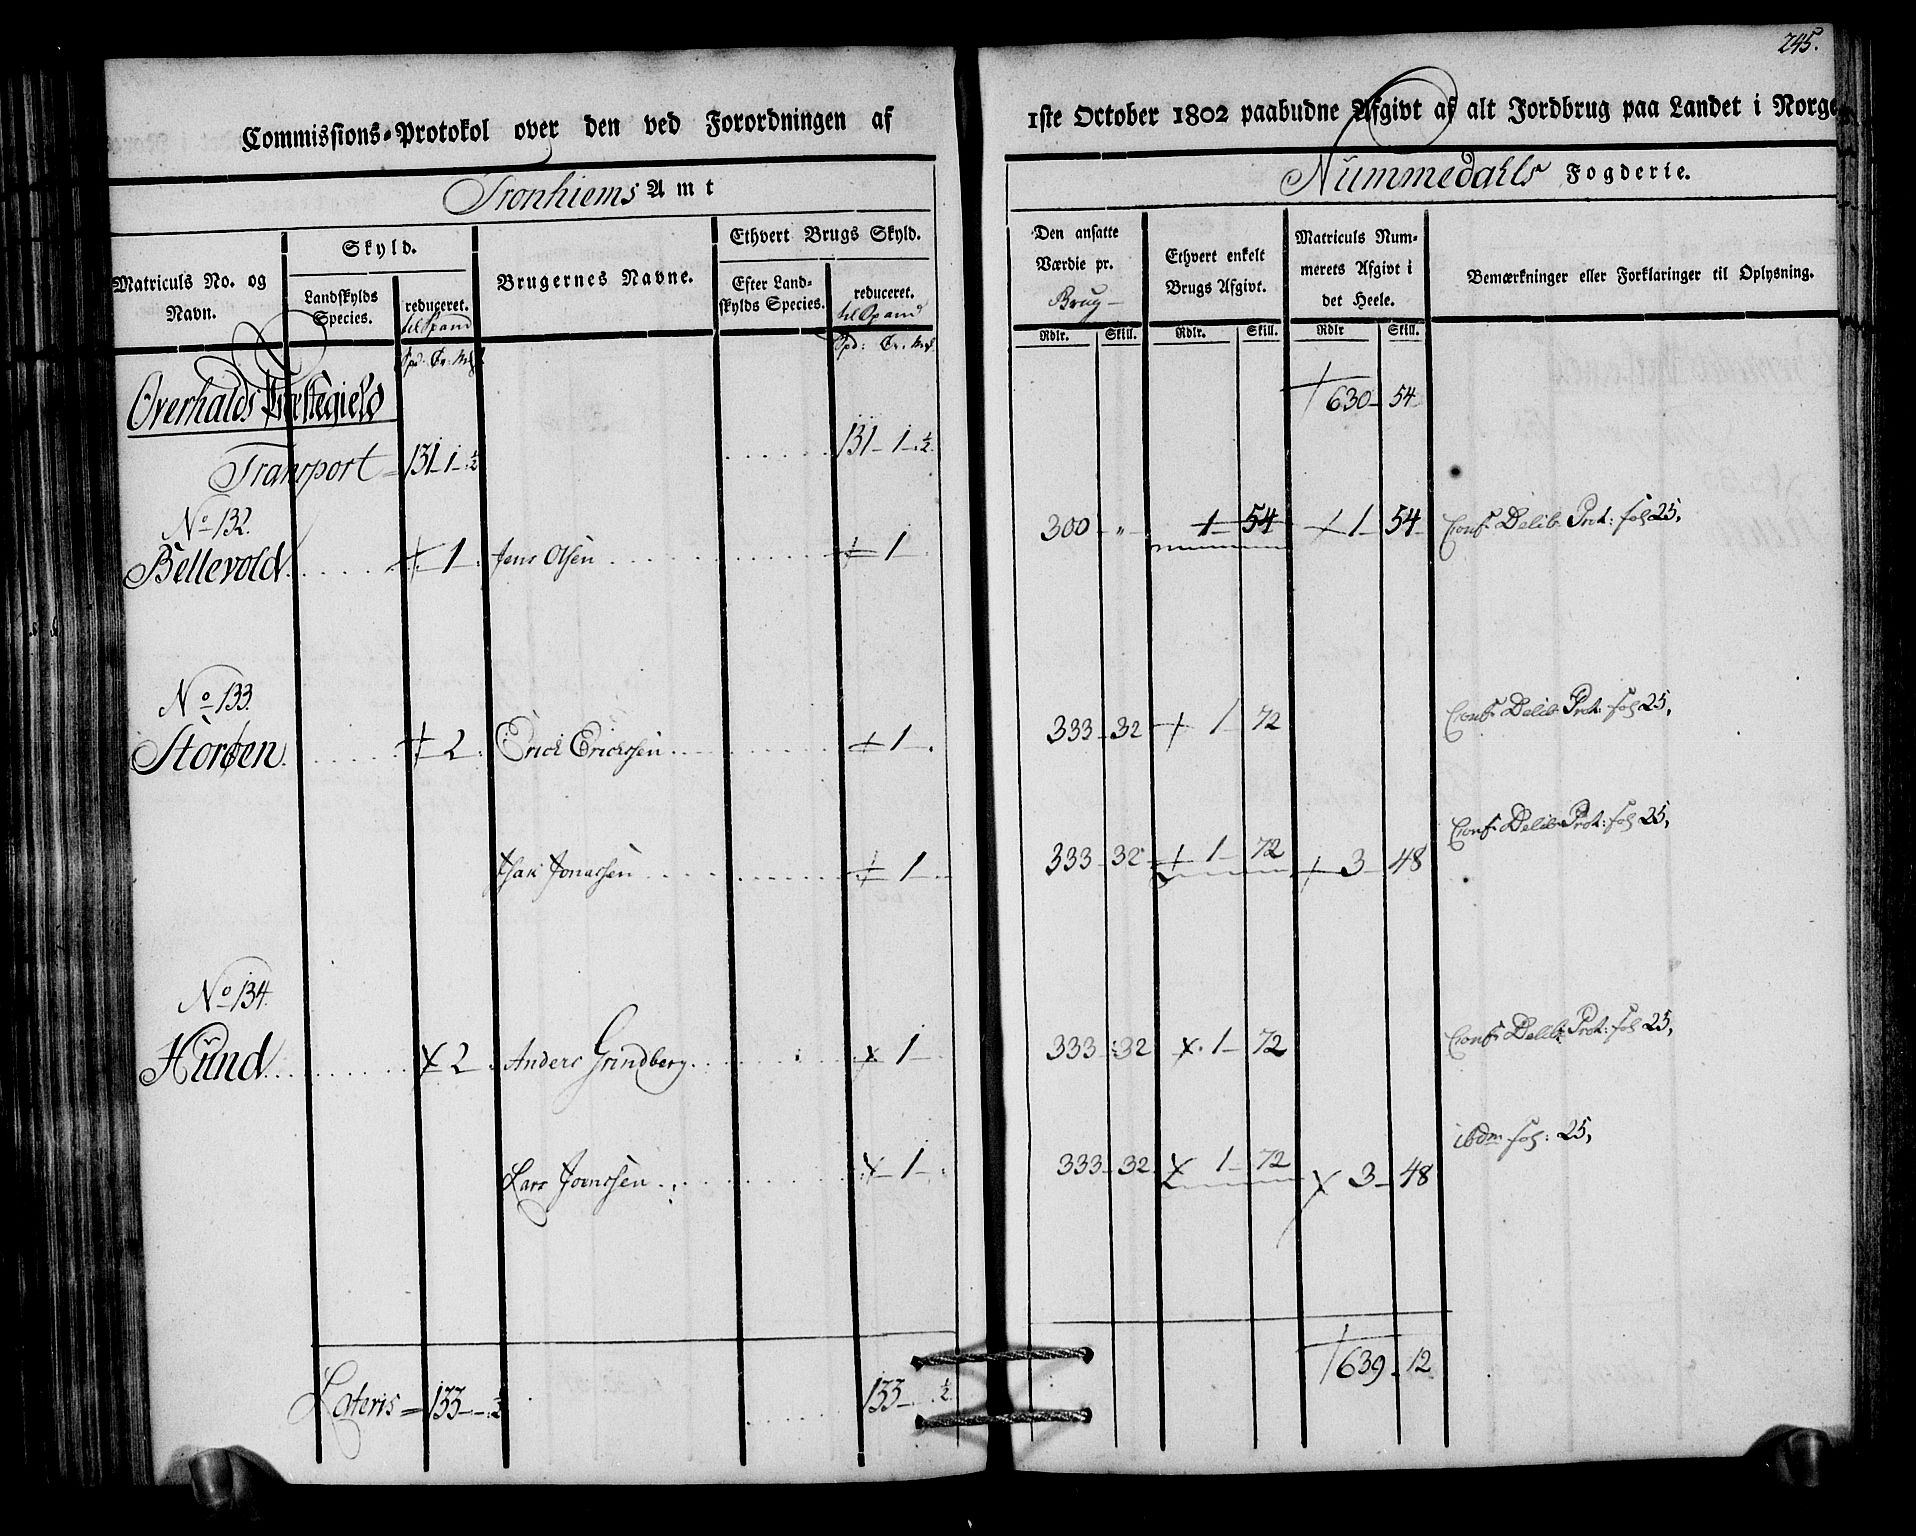 245.
Commissions-Protokol over den ved Forordningen af 1ste October 1802 paabudne Afgivt af alt Jordbrug paa Landet i Norge
Tronhiems Amt
Nummedahls Fogderie.
Matriculs No. og Navn.
Skyld.
Landskylds Species.
reduceret. til Spand
Spd: Ör: Mk
Brugernes Navne.
Ethvert Brugs Skyld.
Efter Landskylds Species.
reduceret. til Spand
Spd: Ör: Mk
Den ansatte Værdie pr. Brug
Rdlr. Skill.
Ethvert enkelt Brugs Afgivt.
Rdlr. Skill.
Matriculs Nummerets Afgivt i det Heele.
Rdlr Skill.
Bemærkninger eller Forklaringer til Oplysning.
Overhalds Præstegield
630 - 54
Transport = 131 - 1 - ½ 131 - 1 - ½
No 132.
Bellevold 1 Jens Olsen 1 300 - " 1 54 1 - 54 Conf. Delib. Prot: fol 25,
No 133.
Storøen 2 Erick Ericksen 1 333 - 32 1 72 Conf. Delib. Prot: fol 25,
Isak Jonassen 1 333 - 32 1 - 72 3 - 48 Conf. Delib. Prot: fol 25,
No 134.
Hund 2 Anders Grindberg 1 333 32 1 - 72 Conf. Delib. Prot: fol 25,
Lars Joenssen 1 333 - 32 1 - 72 3 - 48 ibdm fol: 25,
Lateris = 133 - ½ 133 - ½ 639 - 12